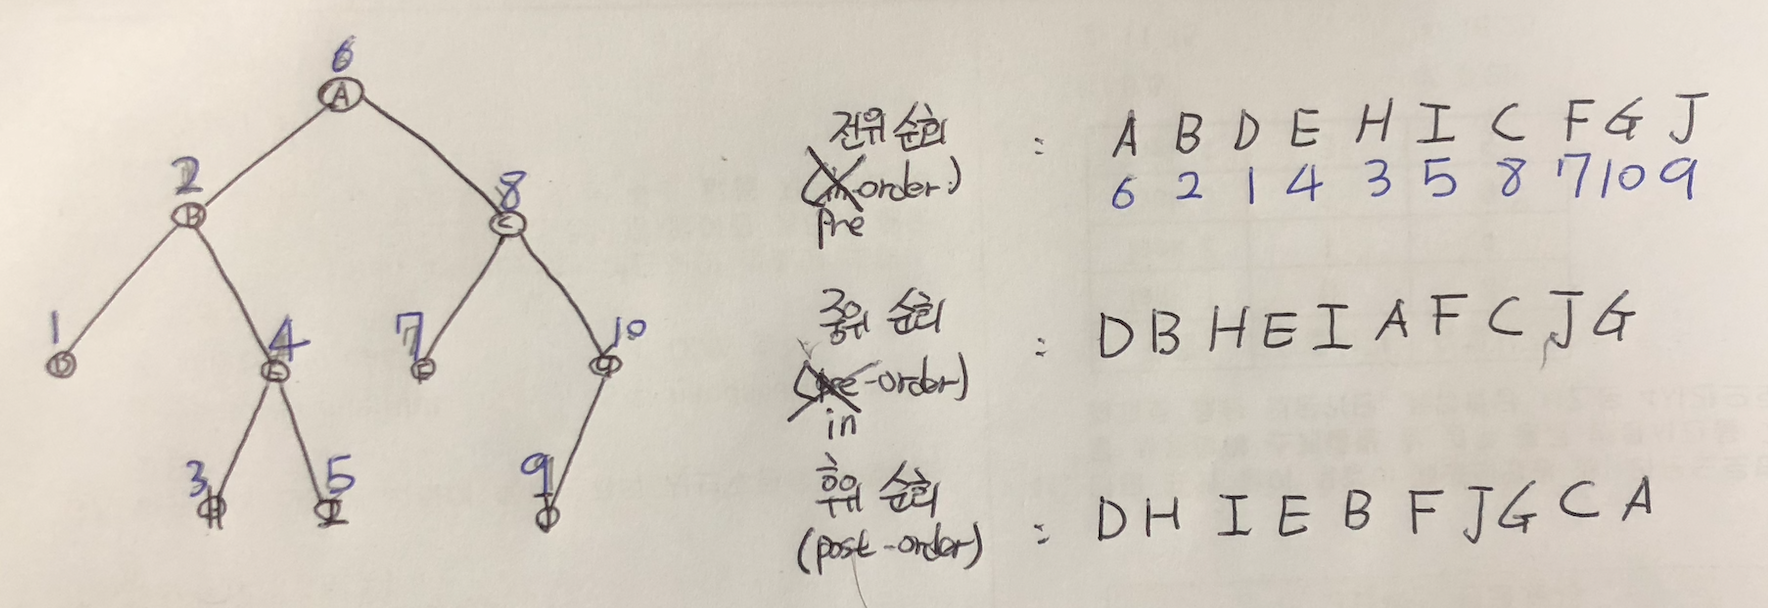 6
A
2
8
B
C
1
4
7
10
D
E
F
G
3
5
9
H
I
J
전위 순회 : A B D E H I C F G J
(in-order) 6 2 1 4 3 5 8 7 10 9
pre
중위 순회 : D B H E I A F C J G
(pre-order)
in
후위 순회 : D H I E B F J G C A
(post-order)